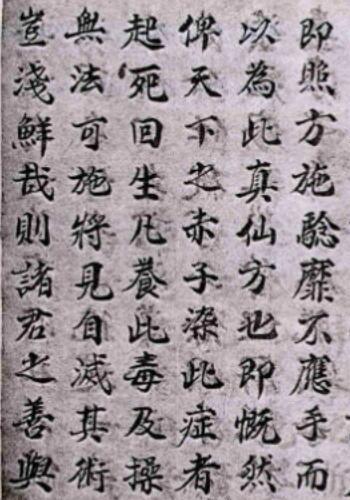 即照方施驗靡不應手而
以為此真仙方也即慨然
俾天下之赤子染此症者
起死回生凡養此毒及操
無法可施將見自滅其術
豈淺鮮哉則諸君之善與